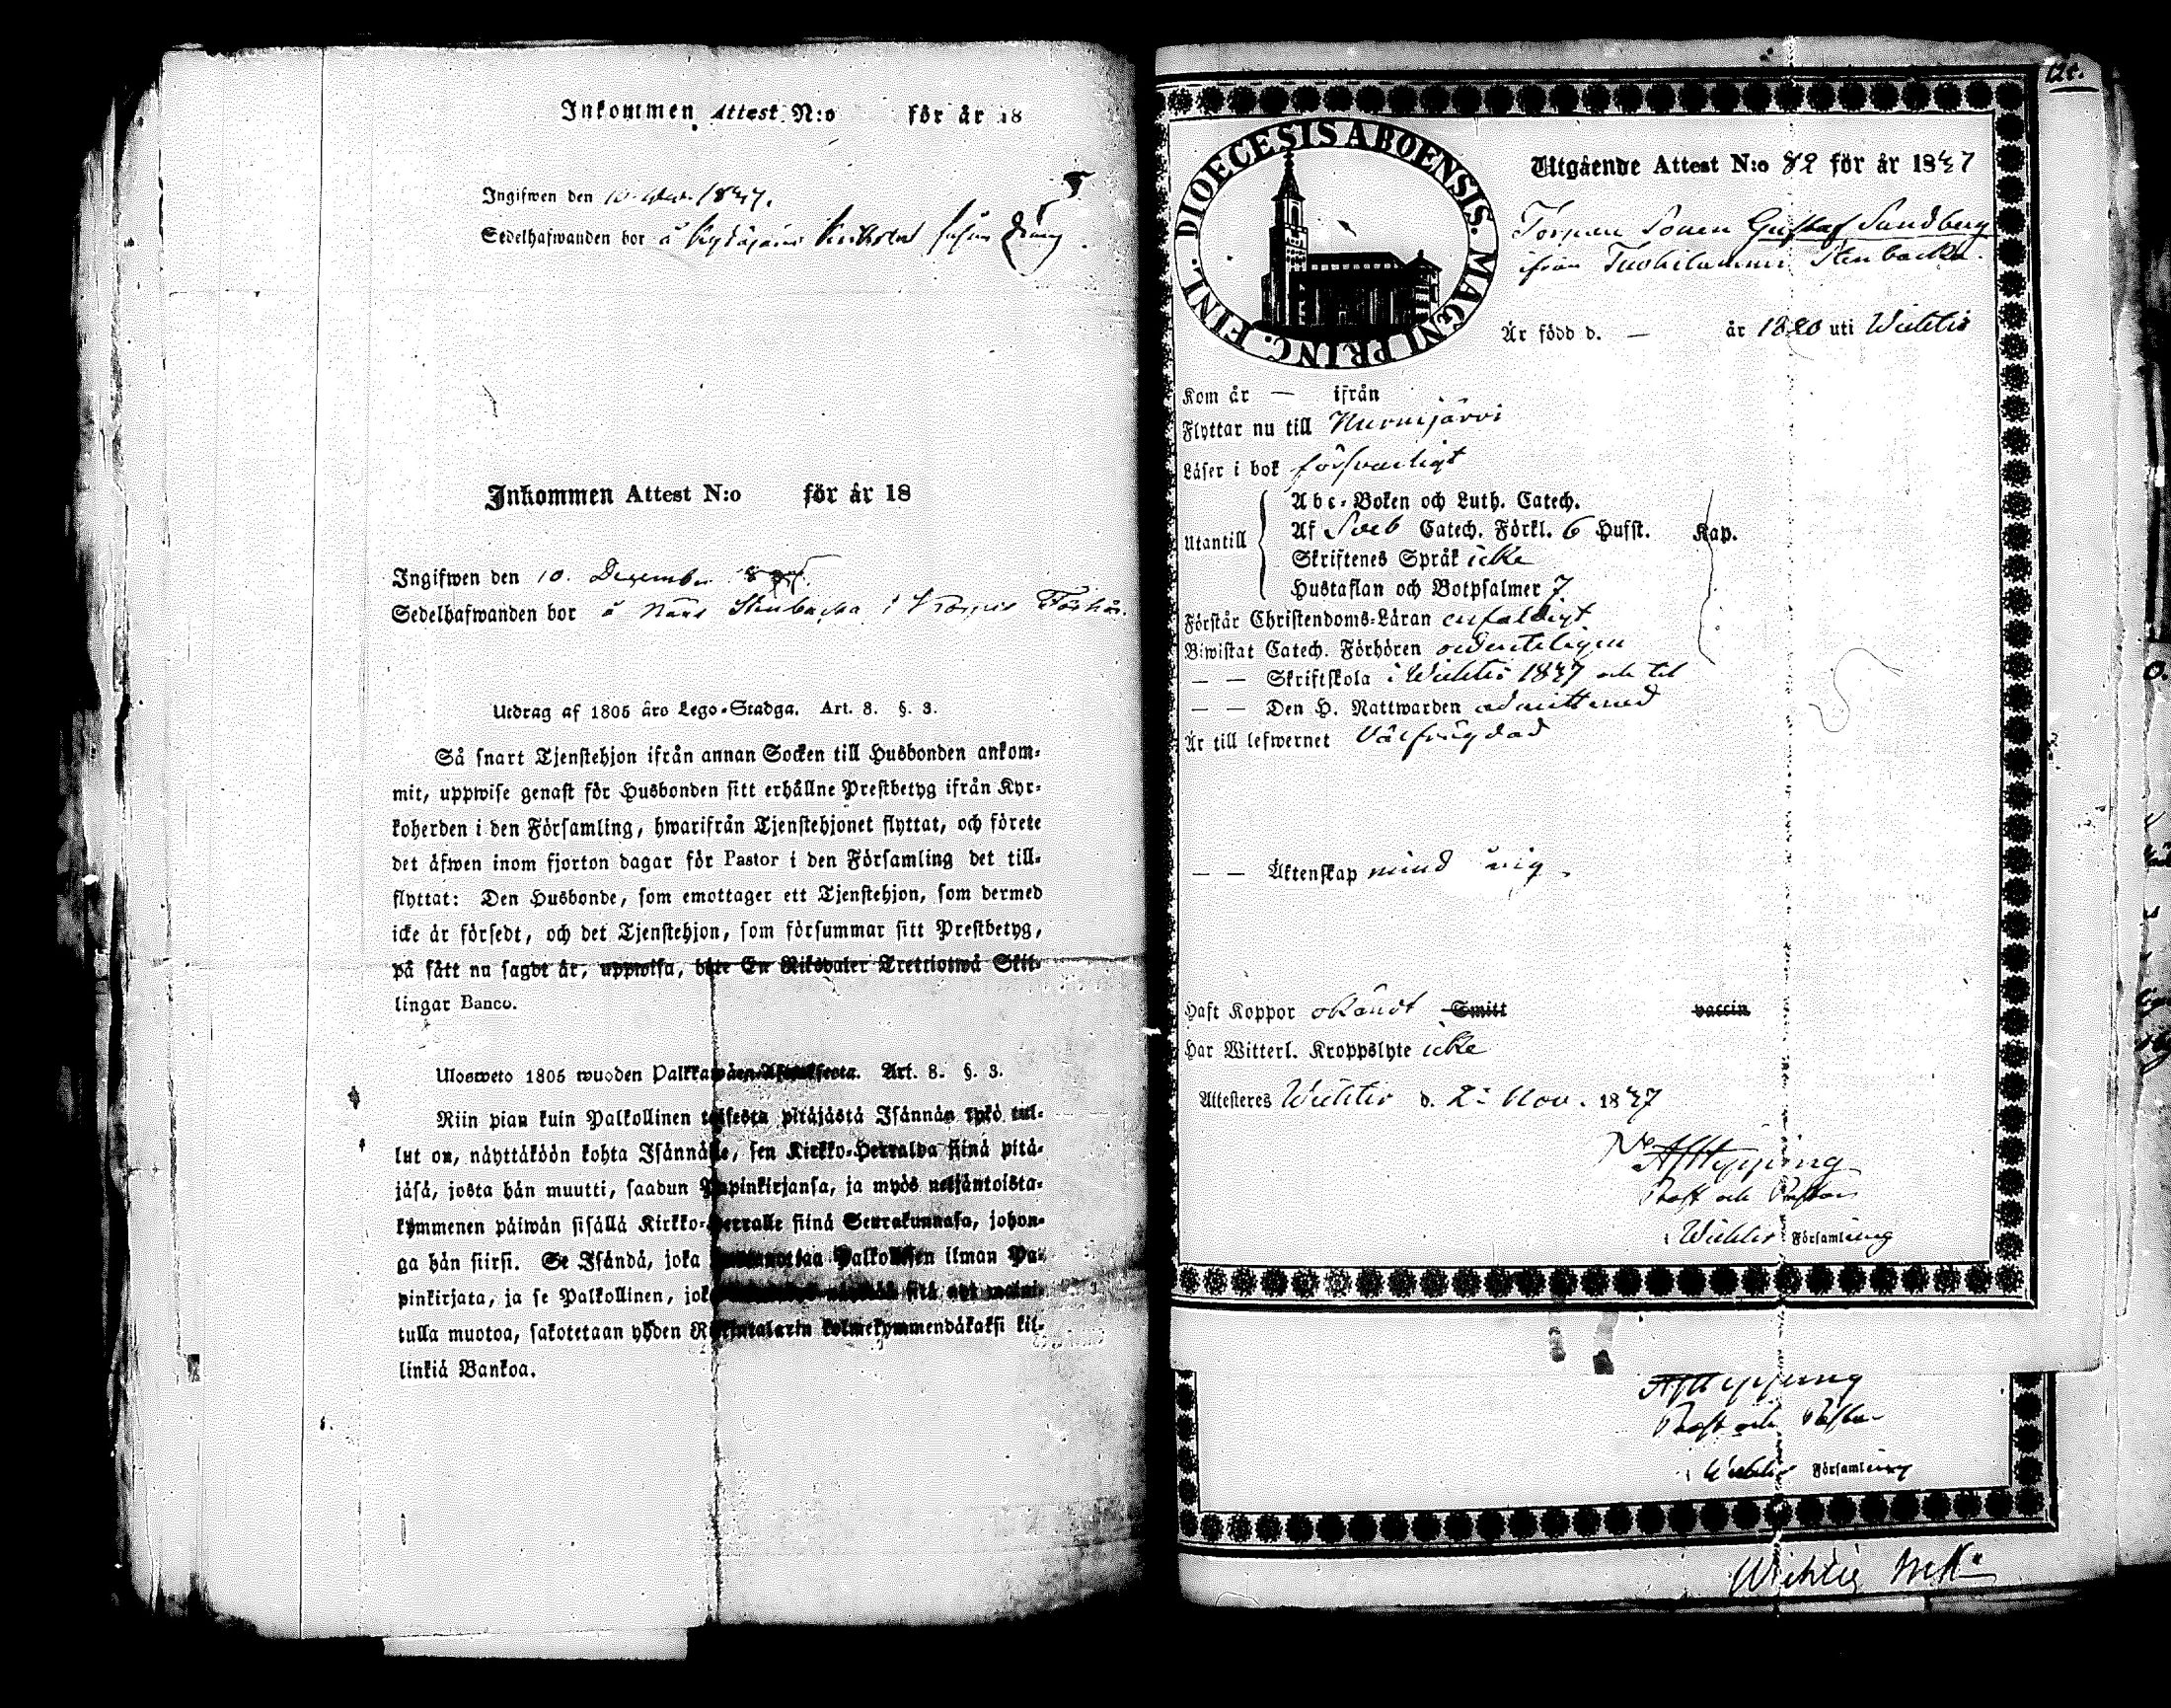 Inkommen Attest N:o för år 18
Ingifwen den 10 1847.
Sedelhafwanden bor å
Inkommen Attest N:o för år 18
Ingifwen den 10. December
Sedelhafwanden bor å Stenbacka i
Utdrag af 1805 års Lego-Stadga. Art. 8. §. 3.
Så snart Tjenstehjon ifrån annan Socken till Husbonden ankom-
mit, uppwise genast för Husbonden sitt erhållne Prestbetyg ifrån Kyr-
koherden i den Församling, hwarifrån Tjenstehjonet flyttat, och förete
det äfwen inom fjorton dagar för Pastor i den Församling det till-
flyttat: Den Husbonde, som emottager ett Tjenstehjon, som dermed
icke är försedt, och det Tjenstehjon, som försummar sitt Prestbetyg,
på sätt nu sagdt är, uppwisa, böte En Riksdaler Trettiotwå Skil-
lingar Banco.
Ulosweto 1805 wuoden Art. 8. §. 3.
Niin pian kuin Palkollinen toisesta pitäjästä Isännän tykö tul-
lut on, näyttäköön kohta Isännälle, sen Kirkko-Herralda siinä pitä-
jäsä, josta hän muutti, saadun Papinkirjansa, ja myös neljäntoista-
kymmenen päiwän sisällä Kirkko-Herralle siinä Seurakunnasa, johon-
ga hän siirsi. Se Isändä, joka Palkollisen ilman Pa-
pinkirjata, ja se Palkollinen, joka sitä nyt maini-
tulla muotoa, sakotetaan yhden Riksintalarin kolmekymmendäkaksi kil-
linkiä Bankoa.
At.
DIOECESIS ABOENSIS. MAGNI PRINC. FINL.
Utgående Attest N:o 82 för år 1847
Torpare Sonen Gustaf Sundberg
ifrån Tuohilammi Stenbacka.
Är född d. — år 1820 uti Wichtis
Kom år — ifrån
Flyttar nu till Nurmijärvi
Läser i bok försvarligt
Utantill
Abc-Boken och Luth. Catech.
Af Sveb Catech. Förkl. 6 Hufst. Kap.
Skriftenes Språk icke
Hustaflan och Botpsalmer 7.
Förstår Christendoms-Läran enfaldigt
Biwistat Catech. Förhören ordenteligen
— — Skriftskola i Wichtis 1847 och til
— — Den H. Nattwarden admitterad
Är till lefwernet Välfrägdad
— — Äktenskap
Haft Koppor okändt Smitt vaccin
Har Witterl. Kroppslyte icke
Attesteres Wichtis d. 2 Nov. 1847
Prost och Pastor
i Wichtis Församling
Prost och Pastor
i Wichtis Församling
Wichtis